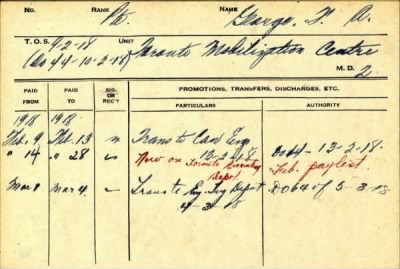 No. RANK Pte. NAME George, F. A.
T. O. S. 9-2-18 UNIT Toronto Mobilization Centre
(DO 44-10-2-18) M. D. 2
PAID FROM PAID TO SIG. OR REC'T PROMOTIONS, TRANSFERS, DISCHARGES, ETC.
PARTICULARS AUTHORITY
1918 1918
Feb. 9 Feb. 13 Trans to Can Eng
13-2-18 DO 44-13-2-18.
" 14 " 28 Now on Toronto Recruiting Depot Feb. paylist.
Mar 1 Mar 4 Trans to Eng. Trg Depot DO 64 of 5-3-18
4-3-18